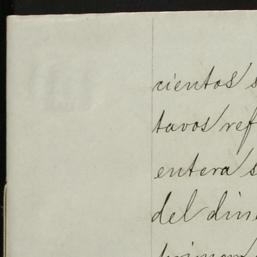 cientos s
tavos ref
entera s
del din